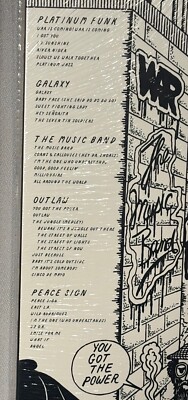 PLATINUM FUNK
WAR IS COMING! WAR IS COMING!
I GOT YOU
L.A. SUNSHINE
RIVER NIGER
SLOWLY WE WALK TOGETHER
PLATINUM JAZZ
GALAXY
GALAXY
BABY FACE (SHE SAID DO DO DO DO)
SWEET FIGHTING LADY
HEY SEÑORITA
THE SEVEN TIN SOLDIERS
THE MUSIC BAND
THE MUSIC BAND
CORNS & CALLOUSES (HEY DR. SHOALS)
I'M THE ONE WHO UNDERSTANDS
GOOD, GOOD FEELIN'
MILLIONAIRE
ALL AROUND THE WORLD
OUTLAW
YOU GOT THE POWER
OUTLAW
THE JUNGLE (MEDLEY)
BEWARE IT'S A JUNGLE OUT THERE
THE STREET OF WALLS
THE STREET OF LIGHTS
THE STREET OF NOW
JUST BECAUSE
BABY IT'S COLD OUTSIDE
I'M ABOUT SOMEBODY
CINCO DE MAYO
PEACE SIGN
PEACE SIGN
EAST L.A.
WILD RODRIGUEZ
I'M THE ONE (WHO UNDERSTANDS)
SMILE FOR ME
WHAT IF
ANGEL
WAR
The
Music
Band
YOU
GOT THE
POWER